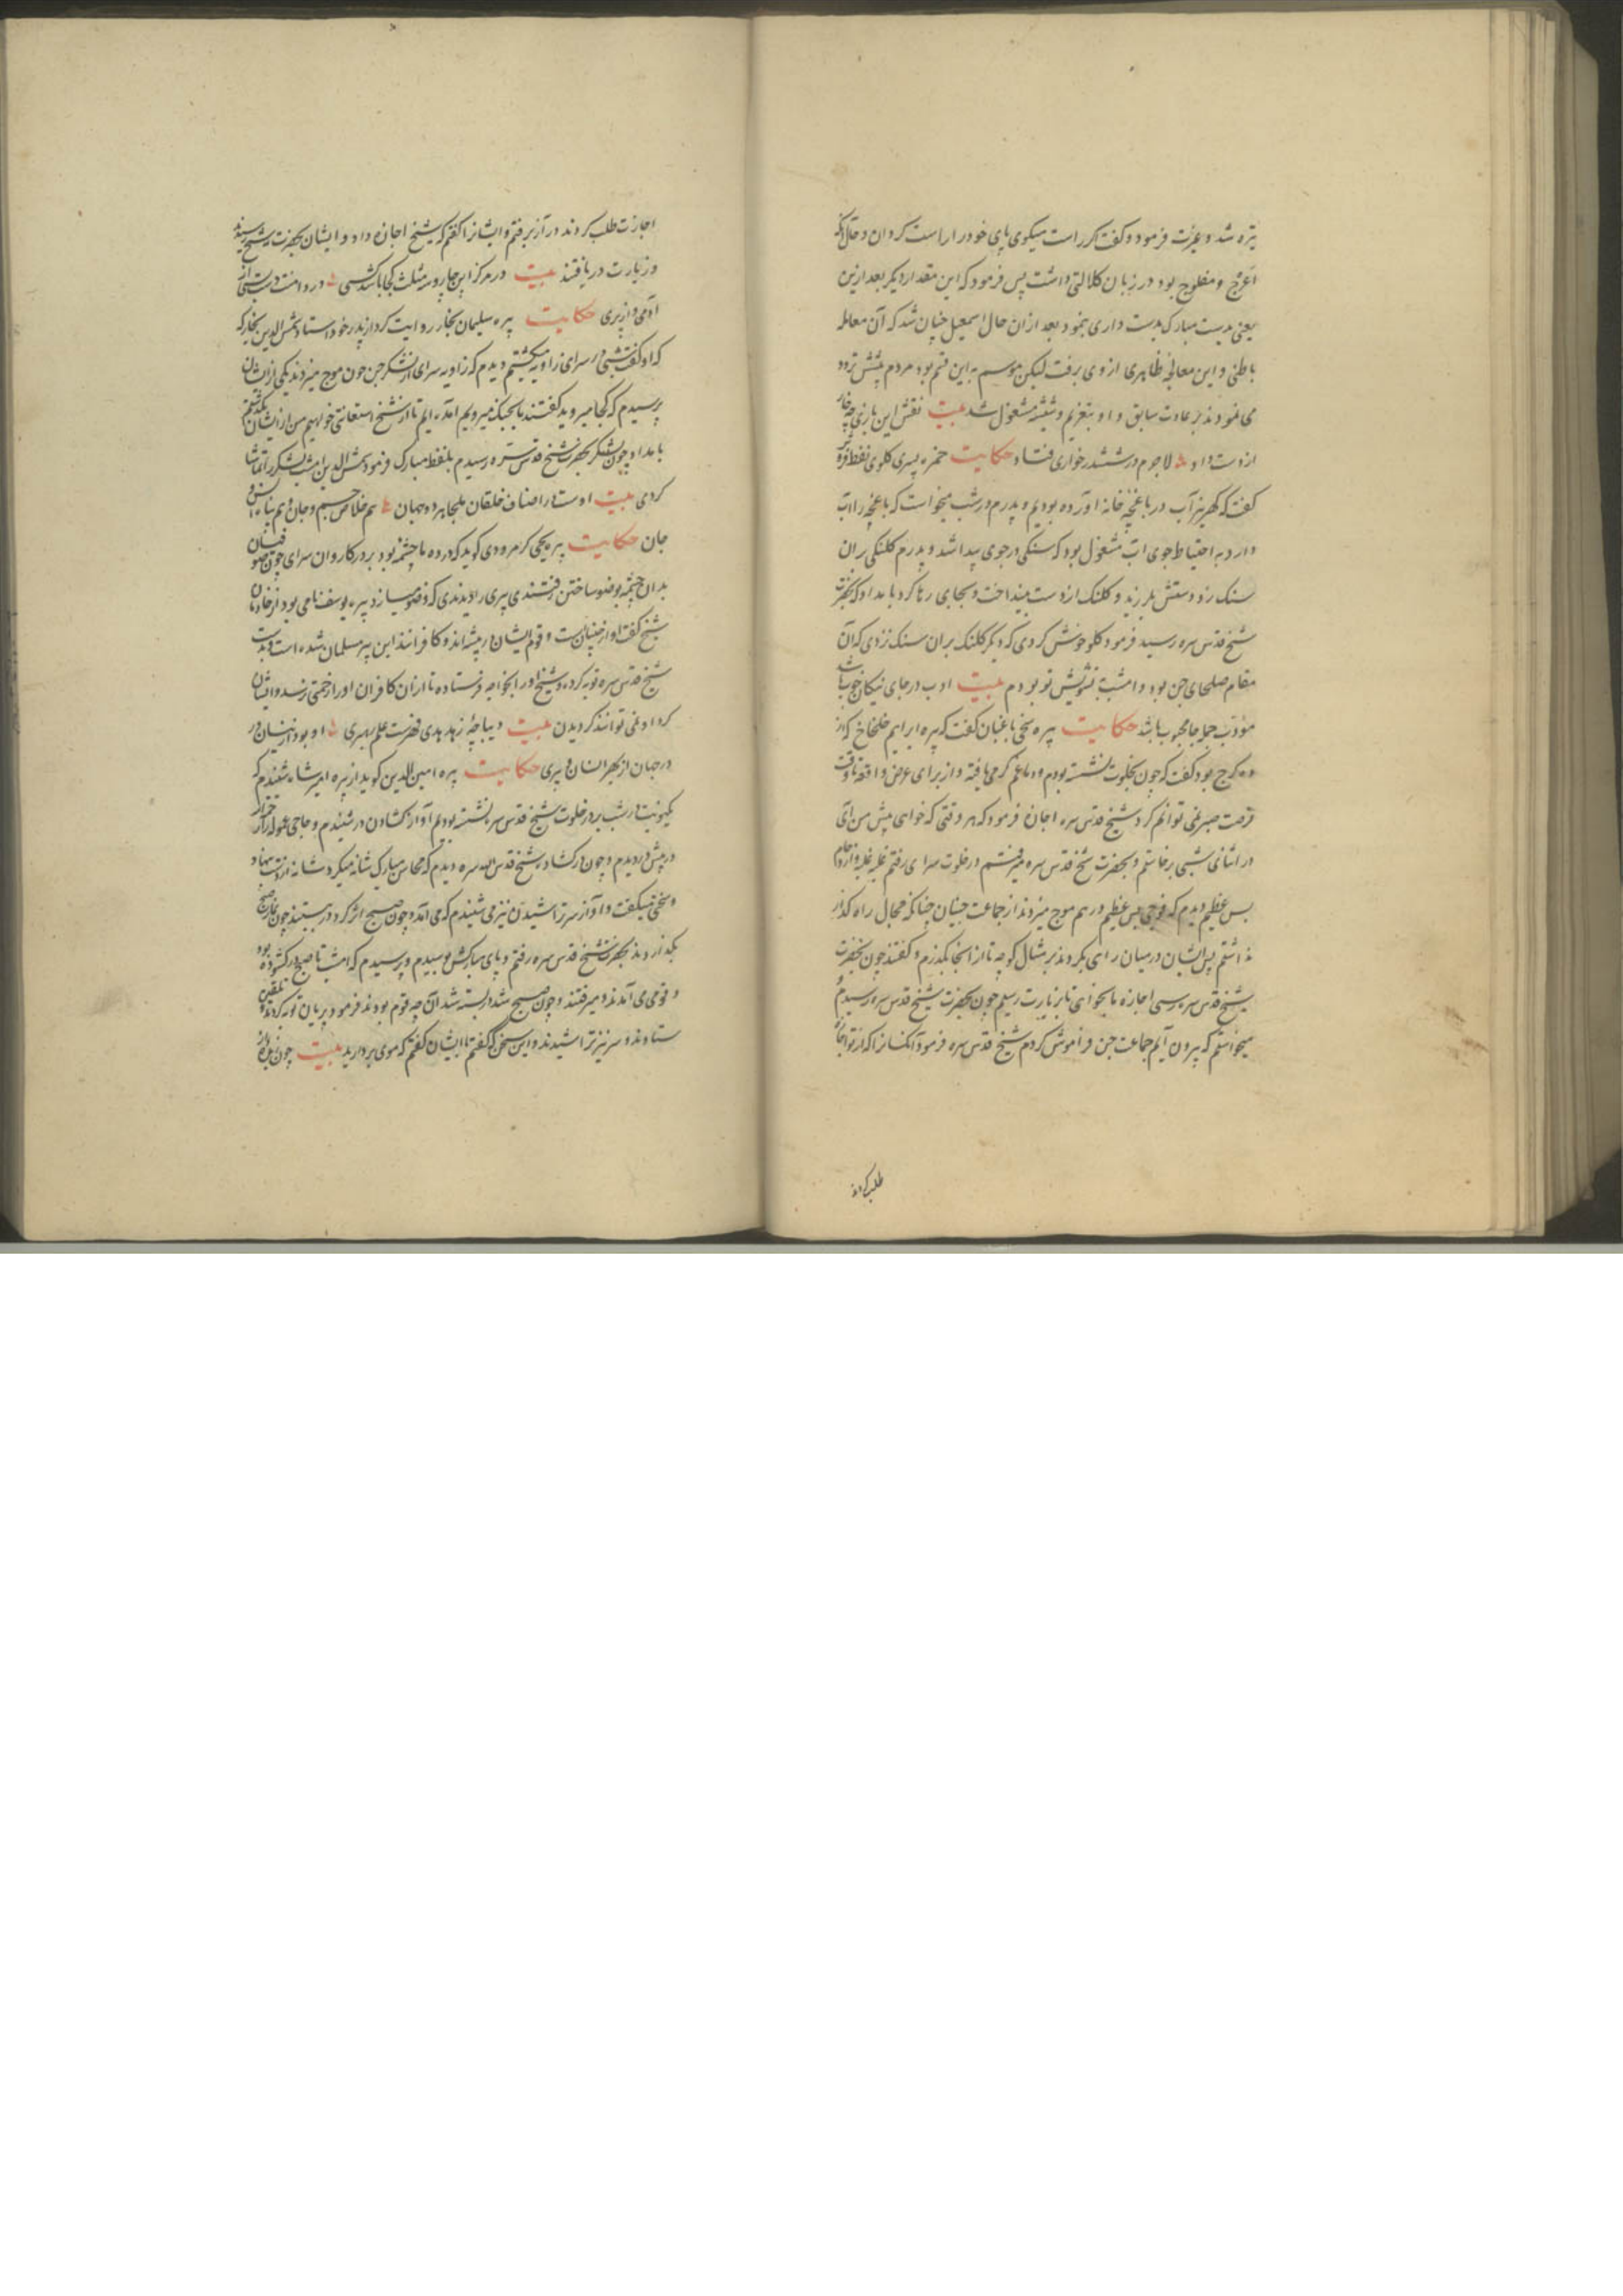 تیره شد و غیرت فرمود و گفت اگر راست میگوی پای خود را راست گردان و حال آنکه
اعرج و مفلوج بود در زبان کلالتی داشت پس فرمود که این مقدار دیگر بعد ازین
یعنی بدست مبارک بدست داری بنمود بعد ازان حال اسمعیل چنان شد که آن معامله
باطنی و این معالجه ظاهری از وی برفت لیکن موسم به این قسم بود مردم پیشش تردد
می نمودند بر عادت سابق و او بتعزیم و شیشه مشغول شد بیت نقش این بازی چه
از دست داد لاجرم در ششدر خواری فتاد حکایت حمزه پسری کلوی نفط فروش
گفت که کهریز آب در باغچه خانه آورده بودیم و پدرم در شب میخواست که باغچه را آب
دارد به احتیاط جوی آب مشغول بود که سنگی در جوی پیدا شد و پدرم کلنگی بران
سنک زد و دستش بلرزید و کلنک از دست بینداخت و بجای رها کرد بامداد که بحضرت
شیخ قدس سره رسید فرمود کلو خوش کردی که دیگر کلنک بران سنک نزدی که آن
مقام صلحای جن بود و امشب بتشویش تو بودم بیت ادب در جای نیکان خوب باشد
مؤدب جمله جا محبوب باشد حکایت پیره سخی باغبان گفت که پیره ابراهیم خلخاخ که از
ده کرج بود گفت که چون بخلوت نشسته بودم و دماغم گرمی یافته و از برای عرض واقعه تا وقت
فرصت صبر نمی توانم کرد شیخ قدس سره اجازه فرمود که هر وقتی که خواهی پیش من آی
در اثنای شبی برخاستم و بحضرت شیخ قدس سره میرفتم در خلوت سرای رفتم غلبه و ازدحام
بس عظیم دیدم که فوجی بس عظیم در هم موج میزدند از جماعت جنیان چنانکه مجال راه گذار
نداشتم پس ایشان در میان راهی بکردند بر مثال کوچه تا از آنجا بگذرم و گفتند چون بحضرت
شیخ قدس سره رسی اجازه ما بخواهی تا بزیارت رسیم چون بحضرت شیخ قدس سره رسیدم و
میخواستم که بیرون آیم جماعت جن فراموش کردم شیخ قدس سره فرمود آنکسانرا که از تو اجازه
طلب کردند
اجازت طلب کردند در آر برفتم و ایشانرا گفتم که شیخ اجازه داد و ایشان بحضرت شیخ رسیدند
و زیارت دریافتند بیت در مرکز این چار و سه مثلث کجا باشد کسی در دامنت دستی از
آدمی و از پری حکایت پیره سلیمان نجار روایت کرد از پدر خود استاد شمس الدین نجار که
که او گفت شبی در سرای زاویه میگشتم دیدم که زاویه سرای از لشکر جن چون موج میزدند یکی از ایشان
پرسیدم که کجا میروید گفتند ما بجنک میرویم آمده ایم تا از شیخ استعانتی خواهیم من از ایشان بگذشتم
بامداد چون بحضرت شیخ قدس سره رسیدم بلفظ مبارک فرمود شمس الدین امشب لشکر را تماشا
کردی بیت اوست در اصناف خلقان ملجا هر دو جهان هم خلاص جسم و جان و هم پناه انس و
جان حکایت پیره یحیی کرمرودی گوید که در ده ما چشمه بود بر در کاروان سرای چون صوفیان
بدان چشمه بوضو ساختن رفتندی پیری را دیدندی که وضو میسازد پیره یوسف نامی بود از خادمان
شیخ گفت او از جنیان است و قوم ایشان در بیشه اند و کافرانند این پیر مسلمان شده است و بدست
شیخ قدس سره توبه کرده و شیخ او را بخواجه فرستاده تا ازان کافران او را زحمتی نرسد و ایشان
گرد او نمی توانند گردیدن بیت دیباچه زهد هدی فهرست علم رهبری او بود از نیسان در
در جهان از بهر انسان و پری حکایت پیره امین الدین گوید از پیره امیرشاه شنیدم که
یکنوبت در شب بر در خلوت شیخ قدس سره نشسته بودیم آواز گشادن در شنیدم و حاجی
در پیش در دیدم و چون در گشاد شیخ قدس الله سره دیدم که محاسن مبارک شانه میکرد شانه از دست بنهاد
و سخنی میگفت و آواز سر تراشیدن نیز می شنیدم که می آمد و چون صبح اثر کرد در بستند چون نماز صبح
بگذاردند بحضرت شیخ قدس سره رفتم و پای مبارکش بوسیدم و پرسیدم که امشب تا صبح در گشوده بود
و قومی می آمدند و میرفتند و چون صبح شد در بسته شد آن چه قوم بودند فرمود پریان توبه کردند و تلقین
ستادند و سر نیز تراشیدند و این سخن که گفتم تا ایشان گفتم که موی بردارید بیت چون